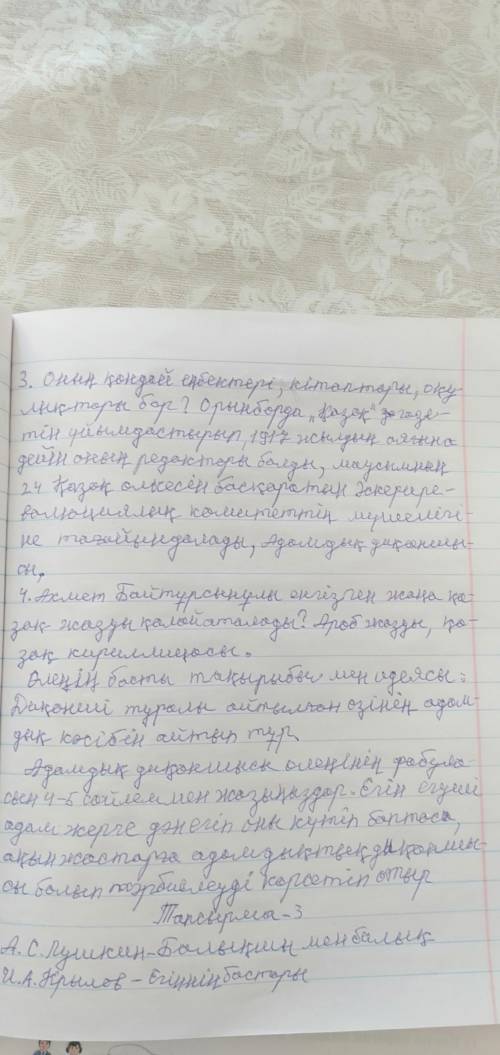 3. Онын қондай еңбектері, кітаптары, оқу-
лықтары бар? Орынборда „Қазақ" газаде-
тін ұйымдастырып, 1917 жылдың аяғына
дейін оның редакторы болды, маусымның
24 Қазақ өлкесін басқаратын Әскерире-
валюциялық камитеттің мүшелігі-
не тағайындалады, Адамдық диқаншы-
сы.
4. Ахмет Байтұрсынұлы енгізген жаңа қа-
зақ жазуы қалай аталады? Араб жазуы, қа-
зақ кириллицасы.
Өлеңің басты тақырыбы мен идеясы:
Диқанши туралы айтылған өзінің адам-
дық кәсібін айтып тұр.
Адамдық диқаншысы өлеңінің фабула-
сын 4-5 сөйлеммен жазыңыздар. Егін егуші
адам жерге дән егіп оны күтіп баптаса,
ақын жастарға адамдықтың диқаншы-
сы болып тәрбиелеуді көрсетіп отыр
Тапсырма-3
А.С. Пушкин-Балықшы мен балық
И.А. Крылов - Егіннің бастары